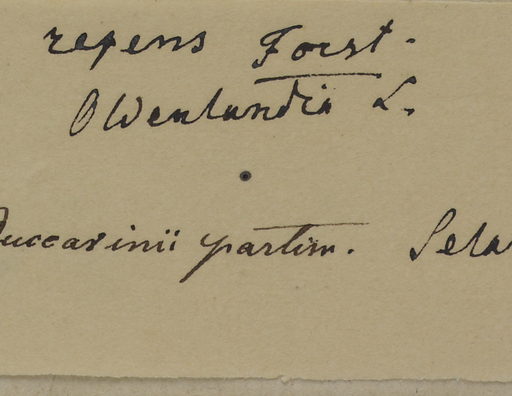 repens Forst.
Oldenlandia L.
Zuccarinii partim. Sela